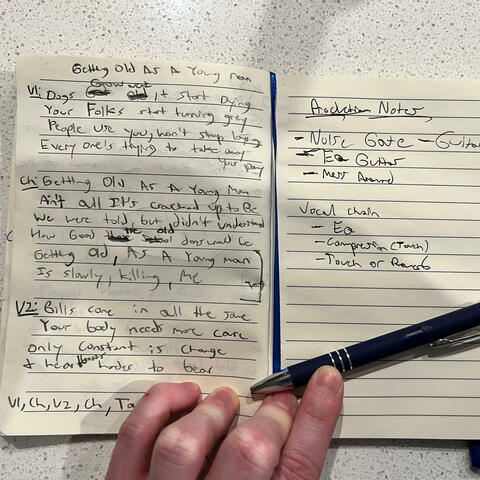 Getting Old As A Young Man
V1: Dogs Grow old, + start Dying
Your Folks start turning grey
People use you, won't stop
Everyone's trying to take away
your pay
Ch: Getting Old As A Young Man
Ain't all It's cracked up to Be
We were told, but didn't understand
How Good the old days would be
Getting Old, As A Young man
Is slowly, killing, Me
V2: Bills come in all the same
Your body needs more care
Only constant is change
+ harder to bear
V1, Ch, V2, Ch, Ta
Production Notes,
- Noise Gate - Guitar
- EQ Guitar
- Mess Around
Vocal chain
- EQ
- Compression (Touch)
- Touch of Reverb